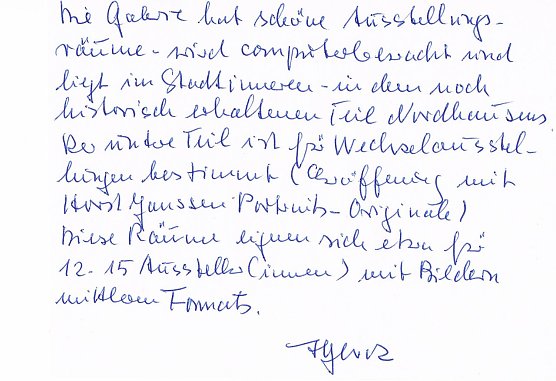 Die Galerie hat schöne Ausstellungs-
räume - wird computerbewacht und
liegt im Stadtinneren - in dem noch
historisch erhaltenen Teil Nordhausens.
Der untere Teil ist für Wechselausstel-
lungen bestimmt (Eröffnung mit
Horst Janssen Portraits-Originale)
Diese Räume eignen sich etwa für
12-15 Aussteller(innen) mit Bildern
mittleren Formats.